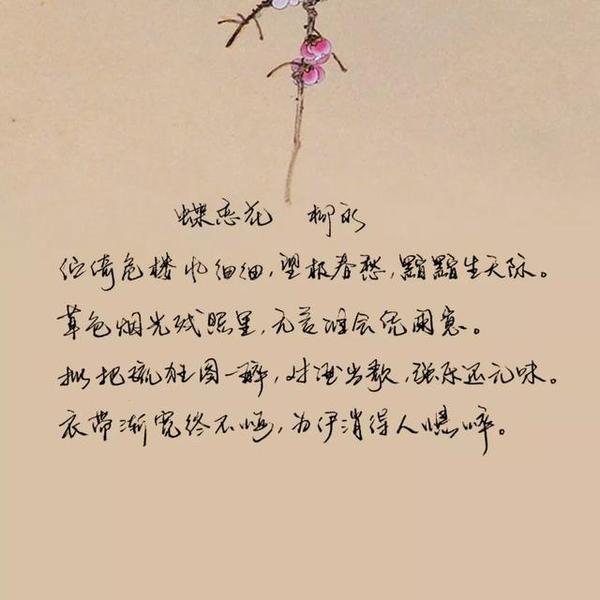 蝶恋花 柳永
伫倚危楼风细细,望极春愁,黯黯生天际。
草色烟光残照里,无言谁会凭阑意。
拟把疏狂图一醉,对酒当歌,强乐还无味。
衣带渐宽终不悔,为伊消得人憔悴。